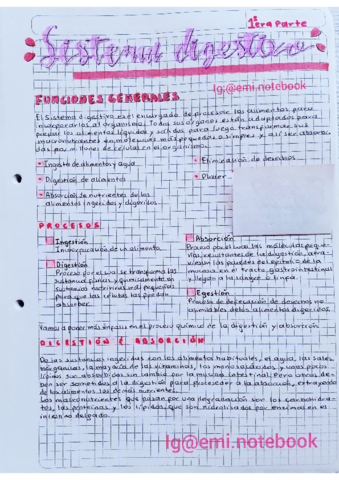 1era Parte
Sistema digestivo
Ig:@emi.notebook
FUNCIONES GENERALES
El sistema digestivo es el encargado de procesar los alimentos para
incorporarlos al organismo. Todos sus órganos están adaptados para
los alimentos líquidos y sólidos, para luego transformar sus
macronutrientes en moléculas más pequeñas o simples y así ser absorbi-
das por millones de células en el organismo.
Ingesta de alimentos y agua
Eliminación de desechos
Digestión de alimentos
Placer
Absorción de nutrientes de los
alimentos ingeridos y digeridos
PROCESOS
Ingestión
Incorporación de un alimento.
Digestión
Proceso por el cual se transforma las
sustancias físicas y químicamente en
sustancias nutricionales pequeñas
para que las células las puedan
absorber.
Absorción
Proceso por el cual las moléculas peque-
ñas, resultantes de la digestión, atra-
viesan las paredes del epitelio de la
mucosa en el tracto gastrointestinal
y llegan a la sangre o linfa.
Egestión
Proceso de defecación de desechos no
asimilables de los alimentos digeridos.
Vamos a poner más énfasis en el proceso químico de la digestión y absorción
DIGESTIÓN & ABSORCIÓN
De las sustancias ingeridas con los alimentos habituales, el agua, las sales
inorgánicas, la mayoría de las vitaminas, los monosacáridos y unos pocos
lípidos son absorbidos sin cambio por la mucosa intestinal. Pero otros de-
ben ser sometidos a la digestión para proceder a la absorción, extrayendo
de los alimentos los demás nutrientes.
Los macronutrientes que pasan por una degradación son los carbohidra-
tos, las proteínas y los lípidos, que son hidrolizados por enzimas en el
intestino delgado.
Ig@emi.notebook